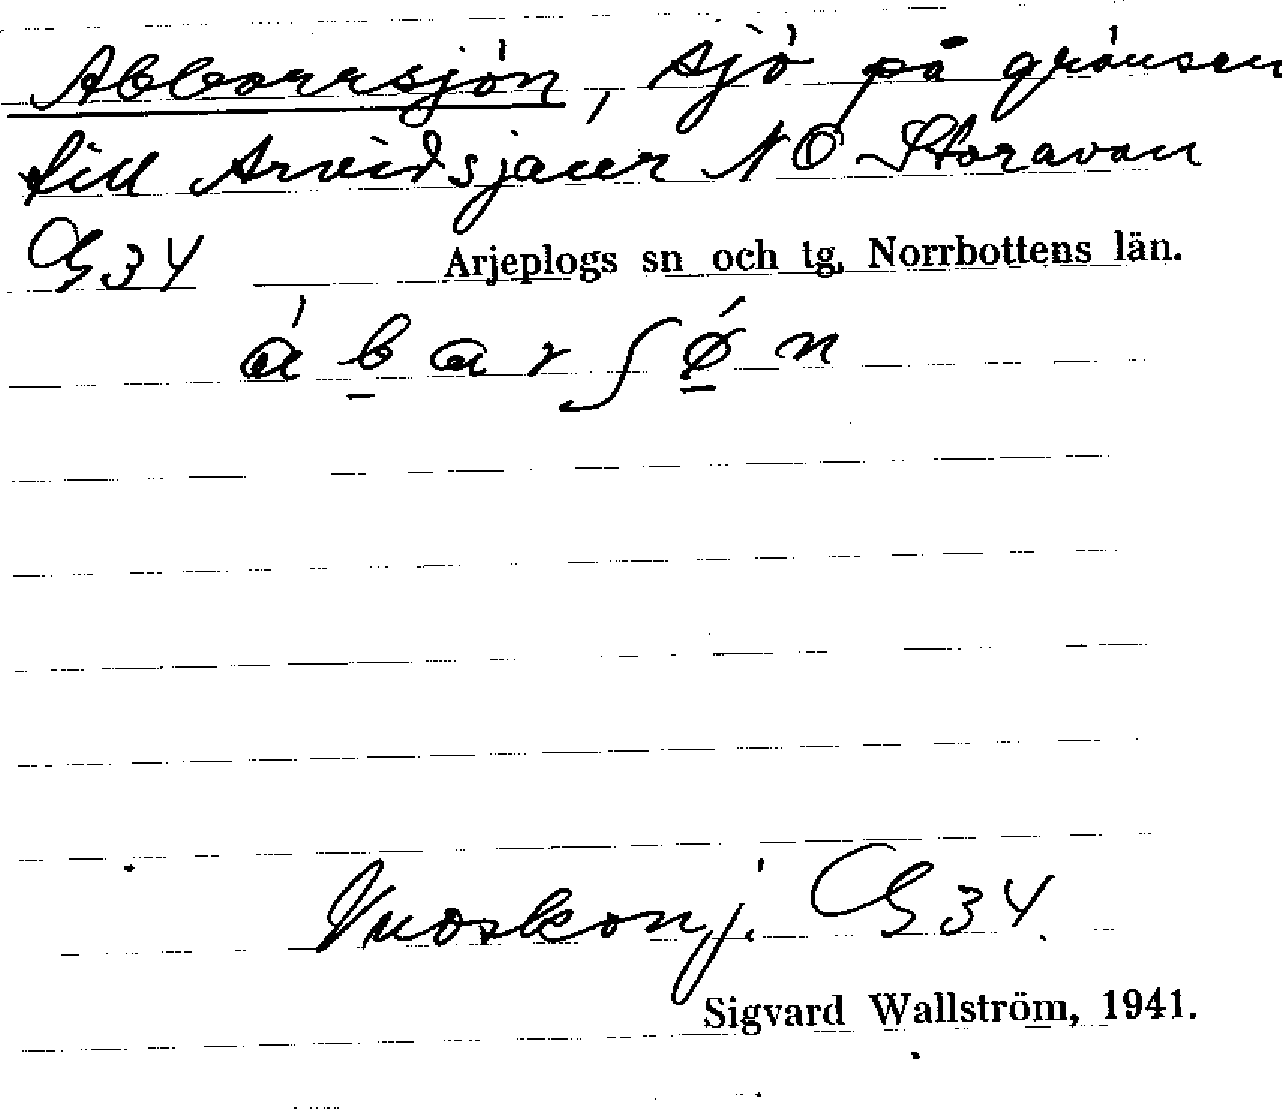 Abborrsjön, sjö på gränsen
till Arvidsjaur NO Storavan
G34
Arjeplogs sn och tg, Norrbottens län.
á b a r ʃ ǿ n
Vuoskonj. G34.
Sigvard Wallström, 1941.